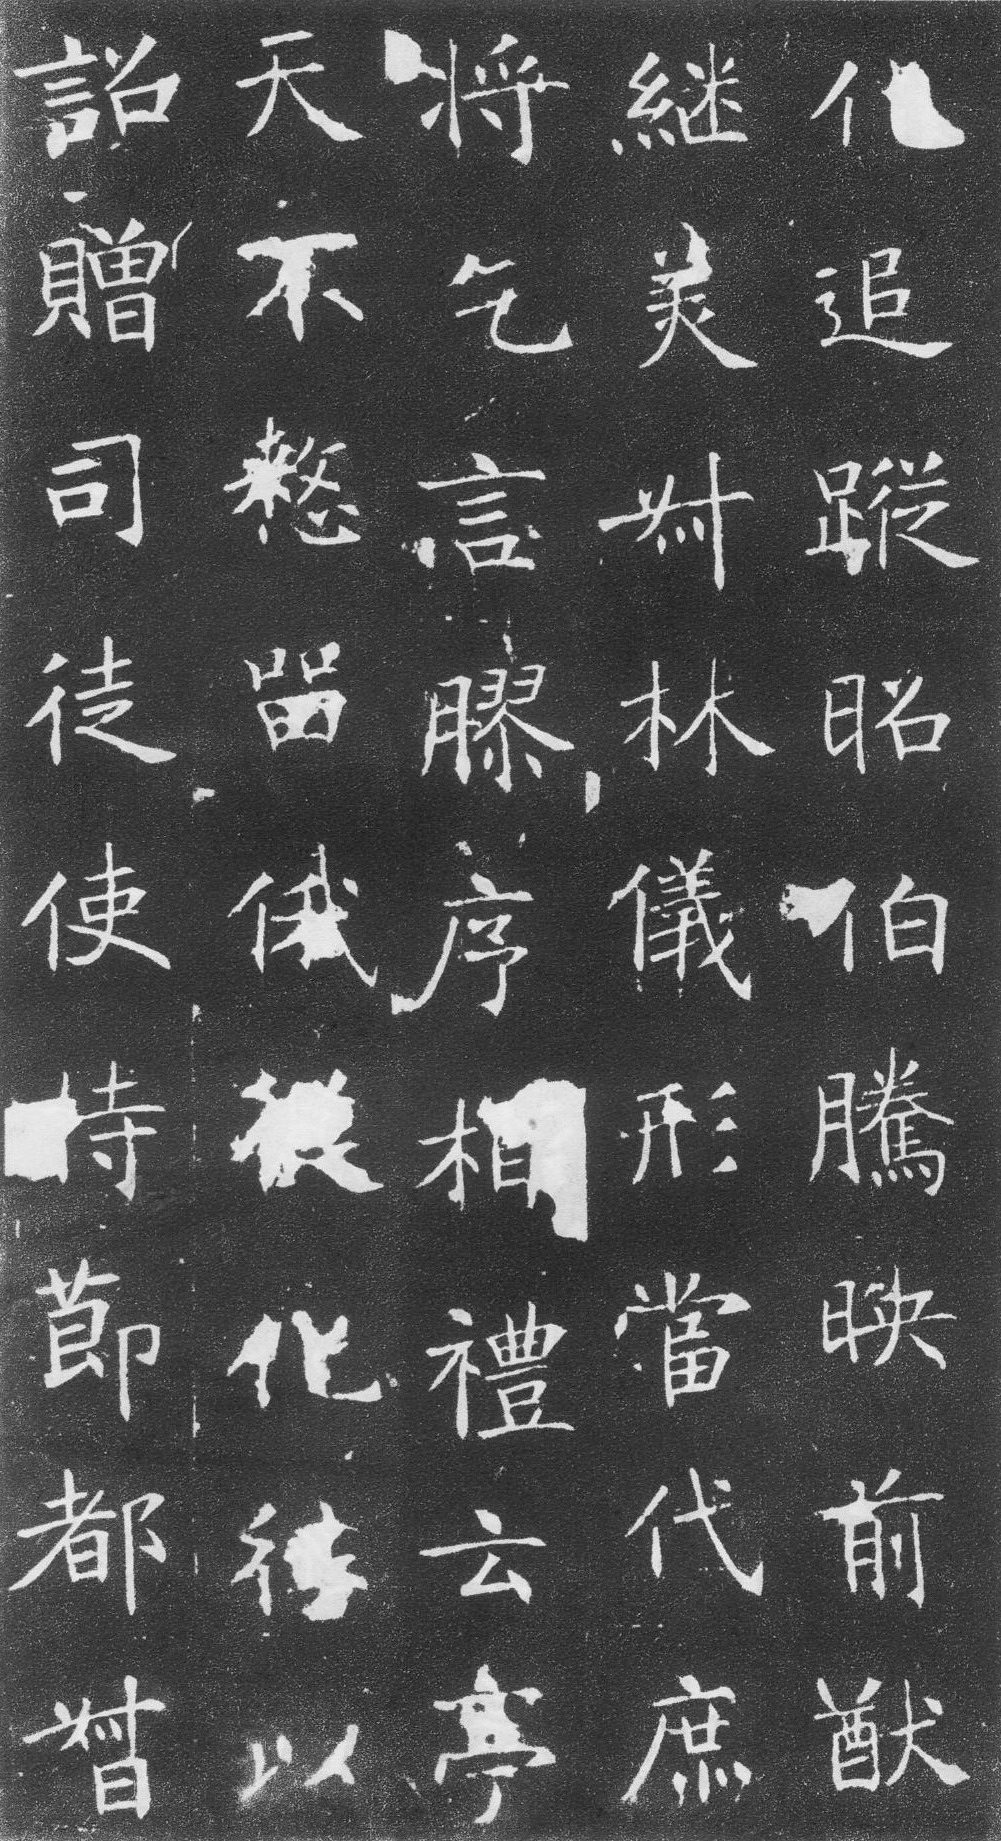 化追蹤昭伯騰映前猷
継美叔林儀形當代庶
將乞言膠序相禮云亭
天不憖留俄從化往以
詔贈司徒使持節都督